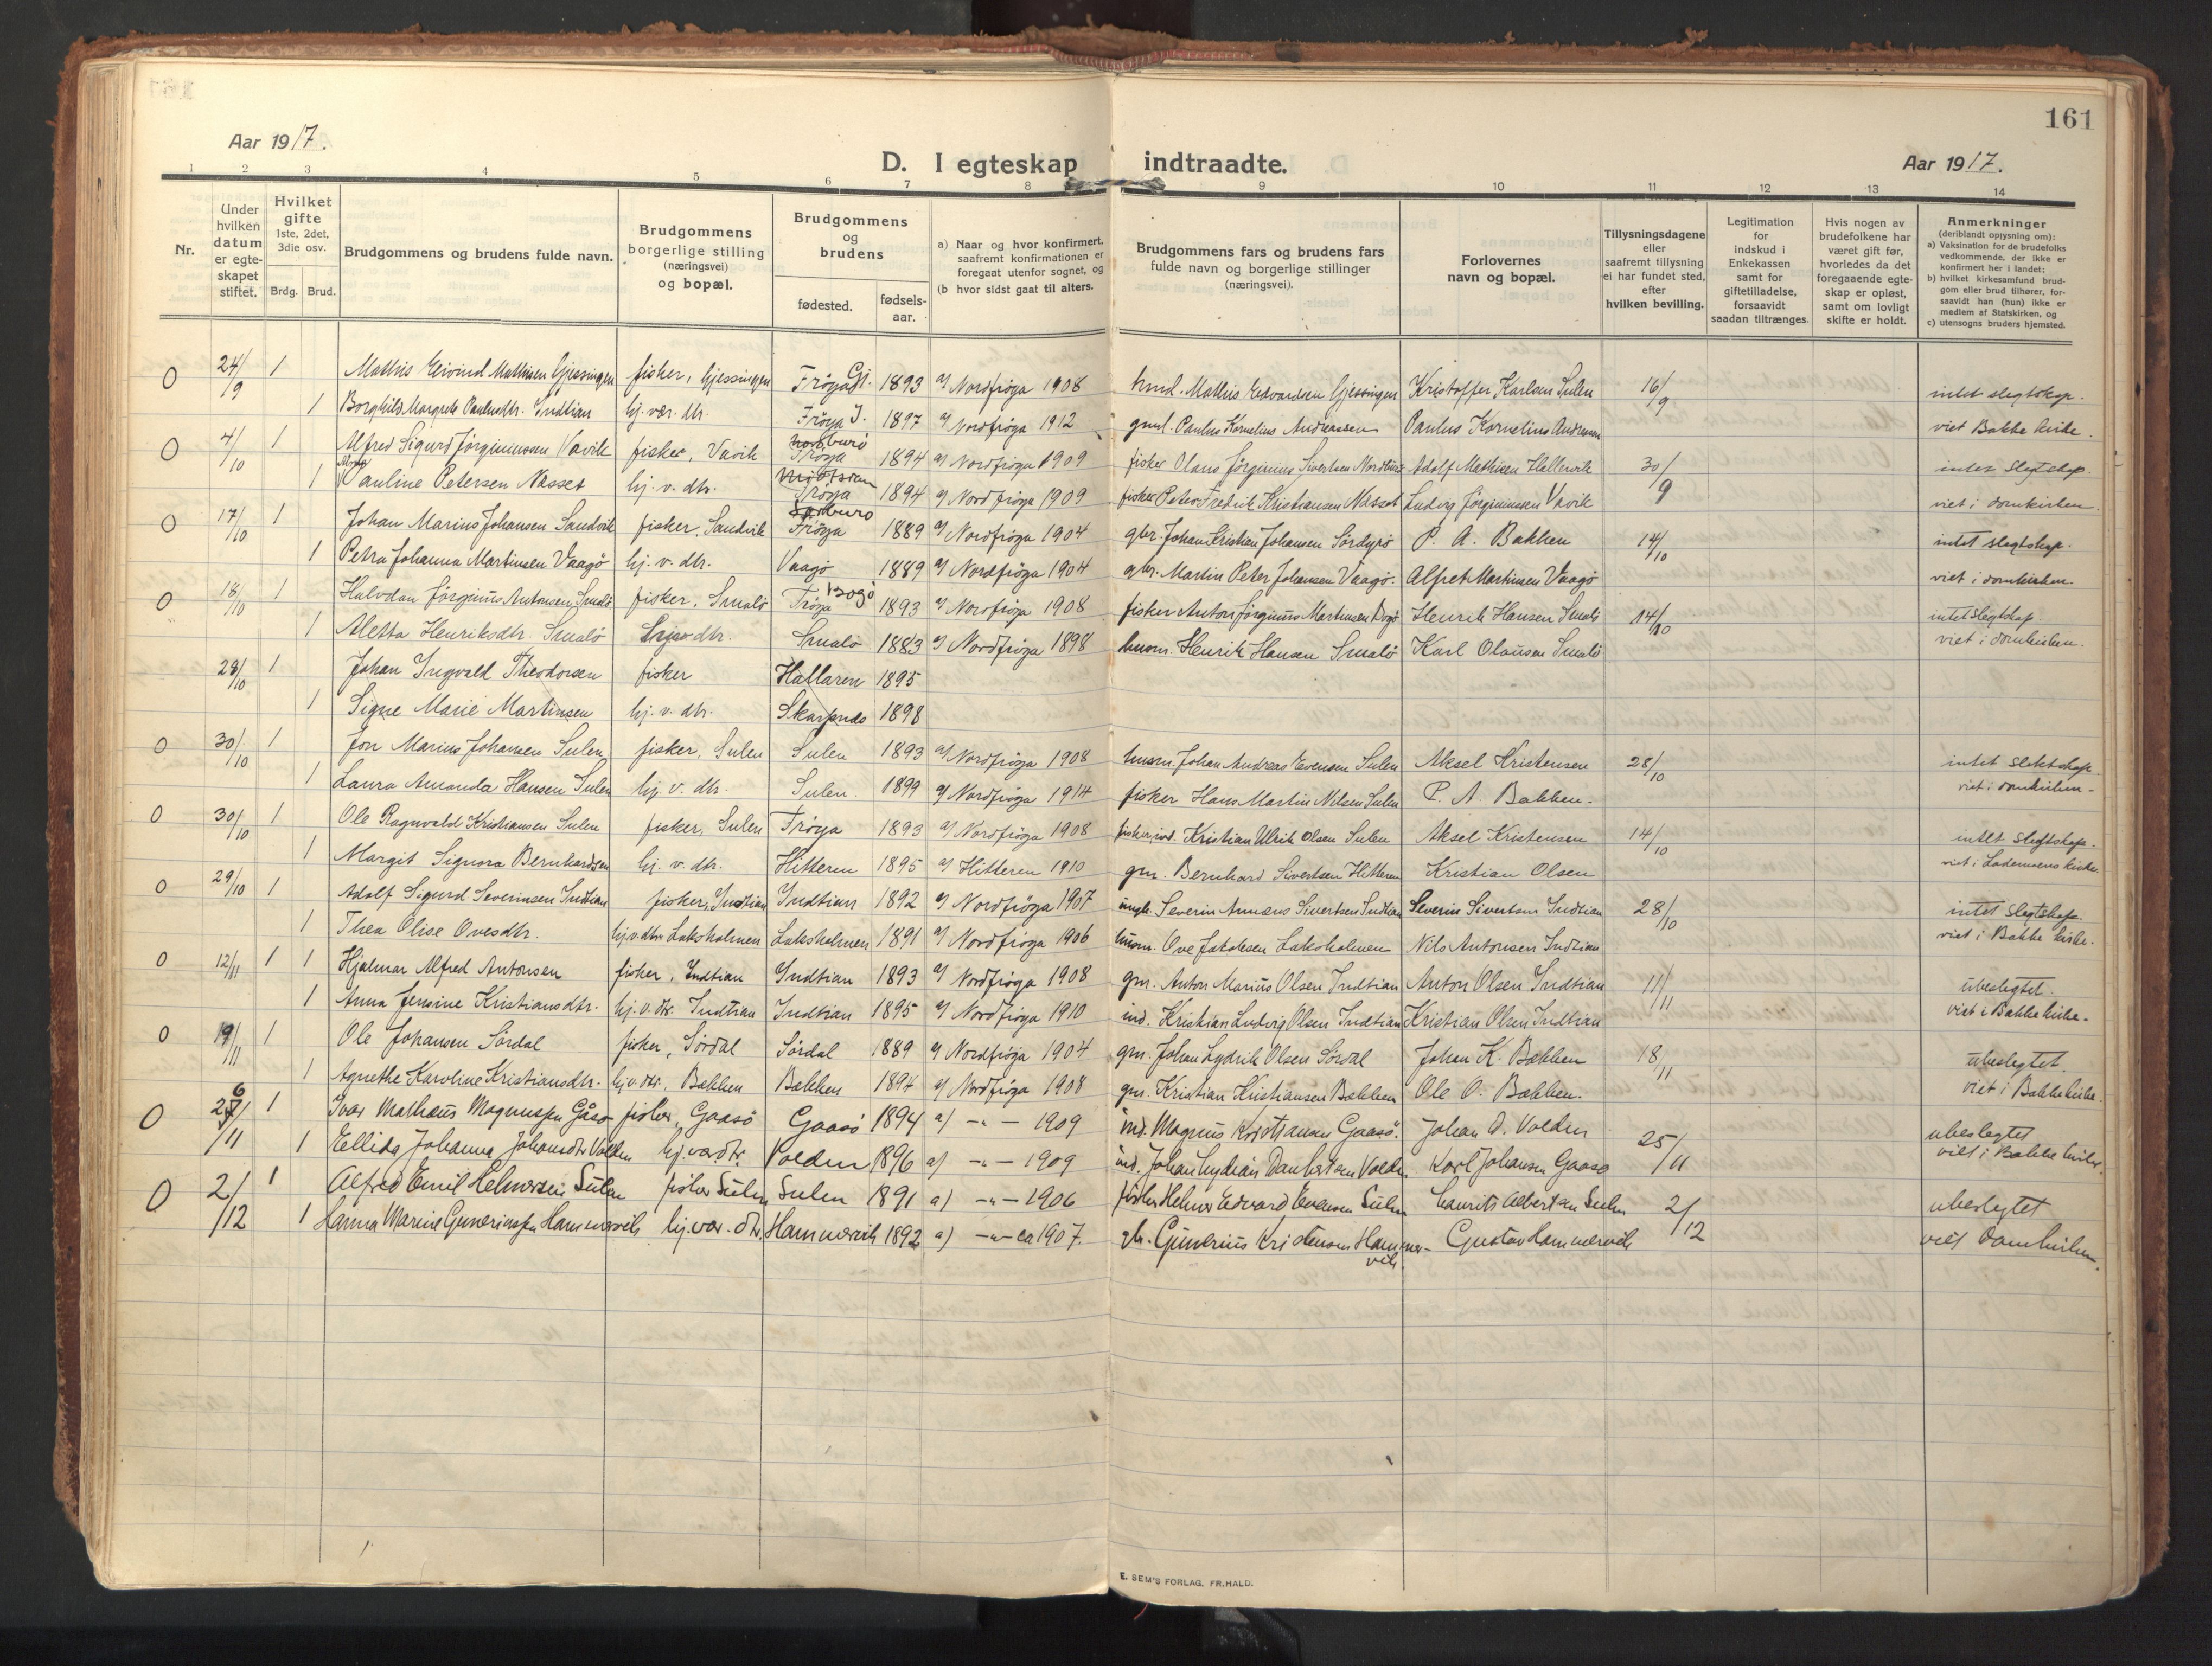 161
Aar 1917.
D. I egteskap indtraadte.
Aar 1917.
1 2 3 4 5 6 7 8 9 10 11 12 13 14
Nr.
Under hvilken datum er egte-skapet stiftet.
Hvilket gifte 1ste, 2det, 3die osv.
Brdg. Brud.
Brudgommens og brudens fulde navn.
Brudgommens borgerlige stilling (næringsvei) og bopæl.
Brudgommens og brudens
fødested. fødsels-aar.
a) Naar og hvor konfirmert, saafremt konfirmationen er foregaat utenfor sognet, og
(b hvor sidst gaat til alters.
Brudgommens fars og brudens fars fulde navn og borgerlige stillinger (næringsvei).
Forlovernes navn og bopæl.
Tillysningsdagene eller saafremt tillysning ei har fundet sted, efter hvilken bevilling.
Legitimation for indskud i Enkekassen samt for giftetilladelse, forsaavidt saadan tiltrænges.
Hvis nogen av brudefolkene har været gift før, hvorledes da det foregaaende egte-skap er opløst, samt om lovligt skifte er holdt.
Anmerkninger (deriblandt oplysning om):
a) Vaksination for de brudefolks vedkommende, der ikke er konfirmert her i landet;
b) hvilket kirkesamfund brud-gom eller brud tilhører, for-saavidt han (hun) ikke er medlem af Statskirken, og
c) utensogns bruders hjemsted.
0 24/9 1 Mathis Eivind Mathisen Gjessingen fisker, Gjessingen Frøya Gj. 1893 a/ Nordfrøya 1908 husm. Mathis Edvardsen Gjessingen Kristoffer Karlsen Sulen 16/9 intet slegtskap.
1 Borghild Margrete Paulusdtr. Indtian hj. vær. dtr. Frøya I. 1897 a/ Nordfrøya 1912 gmd. Paulus Kornelius Andreassen Paulus Kornelius Andreassen viet Bakke kirke.
0 4/10 1 Alfred Sigurd Jørginussen Vavik fisker, Vavik Nordburø Frøya 1894 a/ Nordfrøya 1909 fisker Olaus Jørginius Sivertsen Nordburø Adolf Mathisen Hellervik 30/9 intet slegtskap.
1 Pauline Petersen Nesset hj. v. dtr. Frøya 1894 a/ Nordfrøya 1909 fisker Peter Fredrik Kristiansen Nesset Ludvig Jørginussen Vavik viet i domkirken.
0 17/10 1 Johan Marius Johansen Sandvik fisker, Sandvik Frøya 1889 a/ Nordfrøya 1904 gbr. Johan Kristian Johansen Sørdyrø P. A. Bakken 14/10 intet slegtskap.
1 Petra Johanna Martinsen Vaagø hj. v. dtr. Vaagø 1889 a/ Nordfrøya 1904 gbr. Martin Peter Johansen Vaagø. Alfred Martinsen Vaagø viet i domkirken
0 18/10 1 Halvdan Jørginus Antonsen Smalø fisker, Smalø Frøya Bogø 1893 a/ Nordfrøya 1908 fisker Anton Jørginus Martinsen Bogø Henrik Hansen Smalø 14/10 intet slegtskap.
1 Aletta Henriksdtr. Smalø dtr. Smalø 1883 a/ Nordfrøya 1898 husm. Henrik Hansen Smalø Karl Olausen Smalø viet i domkirken.
28/10 1 Johan Ingvald Theodorsen fisker Hallaren 1895
1 Signe Marie Martinsen hj. v. dtr. Skarpnes 1898
0 30/10 1 Jon Marius Johansen Sulen fisker, Sulen Sulen 1893 a/ Nordfrøya 1908 husm. Johan Andreas Evensen Sulen Aksel Kristensen 28/10 intet slektskap.
1 Laura Amanda Hansen Sulen hj. v. dtr. Sulen. 1899 a/ Nordfrøya 1914 fisker Hans Martin Nilsen Sulen P. A. Bakken. viet i domkirken.
0 30/10 1 Ole Ragnvald Kristiansen Sulen fisker, Sulen Frøya 1893 a/ Nordfrøya 1908 fisker, ind. Kristian Ulrik Olsen Sulen Aksel Kristensen 14/10 intet slegtskap.
1 Margit Signora Bernhardsen hj. v. dtr. Hitteren 1895 a/ Hitteren 1910 gm. Bernhard Sivertsen Hitteren Kristian Olsen viet i Lademoens kirke.
0 29/10 1 Adolf Sigurd Severinsen Indtian fisker, Indtian Indtian 1892 a/ Nordfrøya 1907 Severin Annæus Sivertsen Indtian Severin Sivertsen Indtian 28/10 intet slegtskap.
1 Thea Olise Ovesdtr. hj. v. dtr. Laksholmen Laksholmen 1891 a/ Nordfrøya 1906 husm. Ove Jakobsen Laksholmen Nils Antonsen Indtian viet i Bakke kirke.
0 12/11 1 1 Hjalmar Alfred Antonsen fisker, Indtian Indtian 1893 a/ Nordfrøya 1908 gm. Anton Marius Olsen Indtian Anton Olsen Indtian 11/11 ubeslegtet.
1 Anna Jensine Kristiansdtr. hj. v. dtr. Indtian Indtian 1895 a/ Nordfrøya 1910 ind. Kristian Ludvig Olsen Indtian Kristian Olsen Indtian viet i Bakke kirke.
0 19/11 1 Ole Johansen Sørdal fisker, Sørdal Sørdal 1889 a/ Nordfrøya 1904 gm. Johan Lydrik Olsen Sørdal Johan K. Bakken 18/11 ubeslegtet.
1 Agnethe Karoline Kristiansdtr. hj. v. dtr., Bakken Bakken 1894 a/ Nordfrøya 1908 gm. Kristian Kristiansen Bakken Ole O. Bakken. viet i Bakke kirke.
0 26/11 1 Ivar Mathæus Magnussen Gåsø fisker, Gaasø Gaasø 1894 a) -"- 1909 ind. Magnus Kristiansen Gaasø. Johan D. Volden 25/11 ubeslegtet
1 Ellida Johanna Johansdtr Volden hj. vær. dtr. Volden 1896 a) -"- 1909 ind. Johan Lydian Danbertsen Volden Karl Johansen Gaasø viet i Bakke kirke.
0 2/12 1 Alfred Emil Helmersen Sulen fisker Sulen Sulen 1891 a) -"- 1906 fisker Helmer Edvard Evensen Sulen Laurits Albertsen Sulen 2/12 ubeslegtet
1 Hanna Marie Guneriussen Hammervik hj. vær. dtr. Hammervik 1892 a) -"- ca 1907. gbr. Gunerius Kristensen Hammer-vik Gustav Hammervik viet Domkirken.
E. SEM'S FORLAG, FR.HALD.